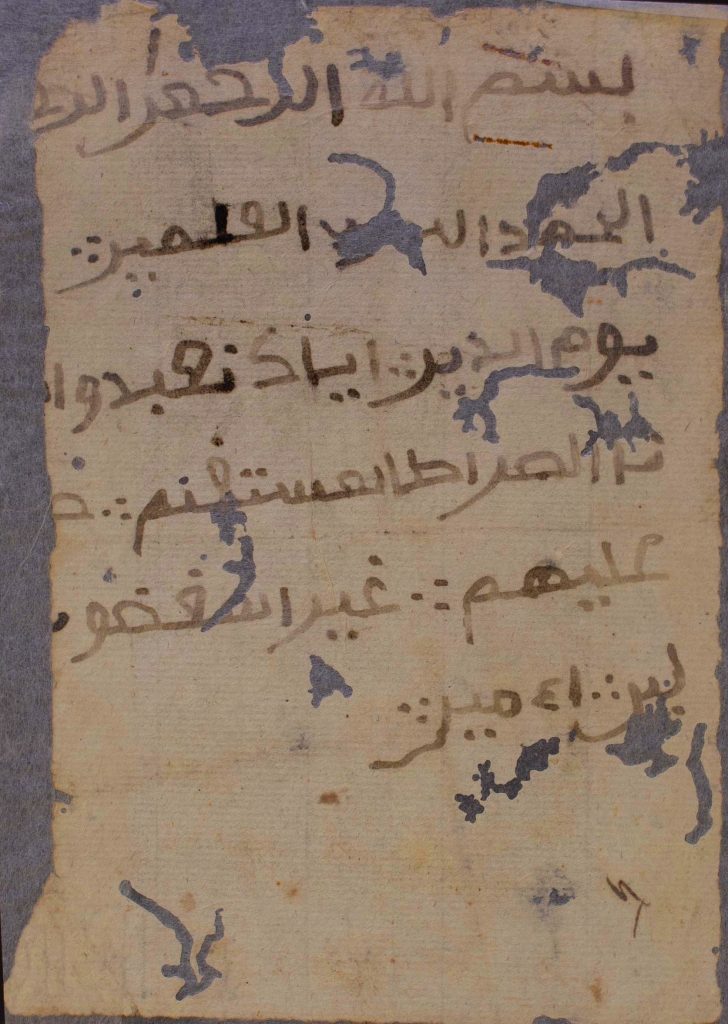 بسم الله الرحمن الرحـ
الحمد العلمين
يوم الدين اياك نعبد وا
نا الصراط المستقيم
عليهم غير المغضو
لين ءامين